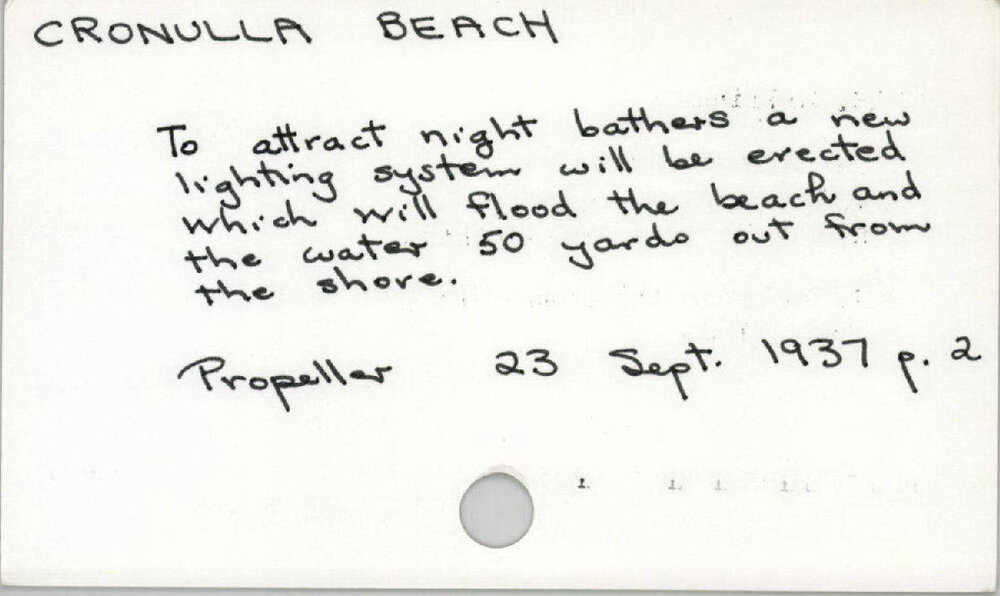 CRONULLA BEACH
To attract night bathers a new
lighting system will be erected
which will flood the beach and
the water 50 yards out from
the shore.
Propeller 23 Sept. 1937 p. 2
1. 1. 1. 1.